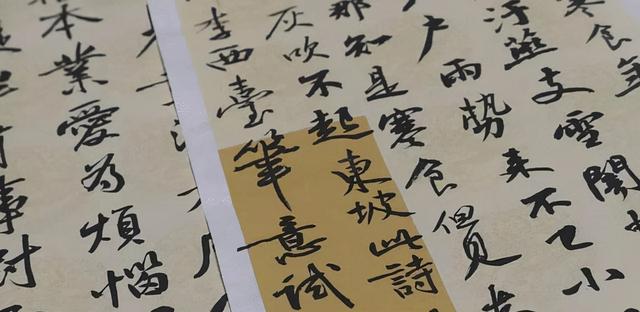 寒食
污燕支雪
户雨勢来不已小
那知是寒食但見
灰吹不起東坡此詩
李西臺筆意試
本業愛為煩惱
事